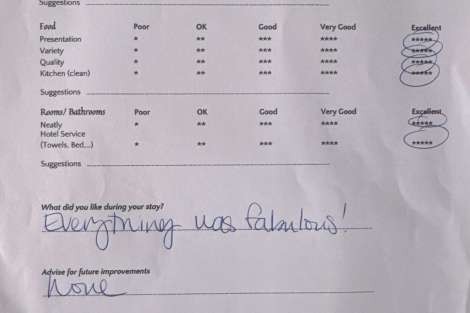 Suggestions
Food Poor OK Good Very Good Excellent
Presentation * ** *** **** *****
Variety * ** *** **** *****
Quality * ** *** **** *****
Kitchen (clean) * ** *** **** *****
Suggestions
Rooms/ Bathrooms Poor OK Good Very Good Excellent
Neatly * ** *** **** *****
Hotel Service
(Towels, Bed,...) * ** *** **** *****
Suggestions
What did you like during your stay?
Everything was fabulous!
Advise for future improvements
None